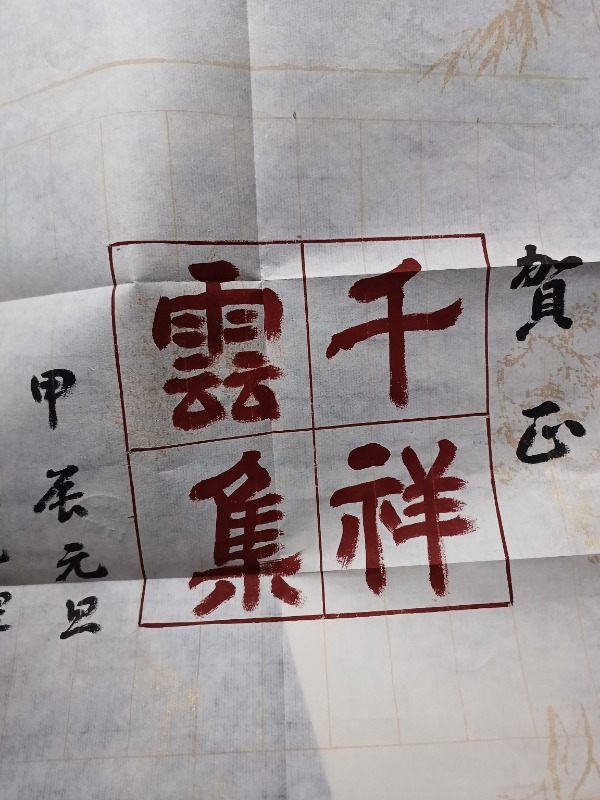 賀正
千祥
雲集
甲辰元旦